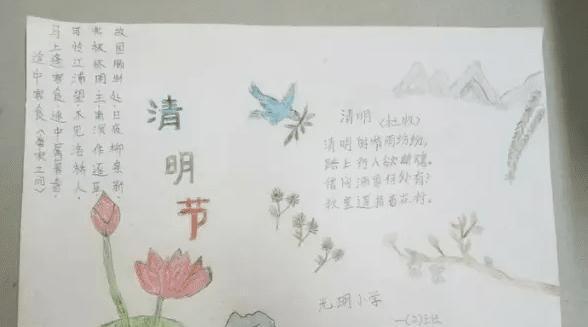 途中寒食《宋之问》
马上逢寒食,途中属暮春。
可怜江浦望,不见洛桥人。
故园肠断处,日夜柳条新。
清明节
清明(杜牧)
清明时节雨纷纷,
路上行人欲断魂。
借问酒家何处有?
牧童遥指杏花村。
光明小学
一(2)班